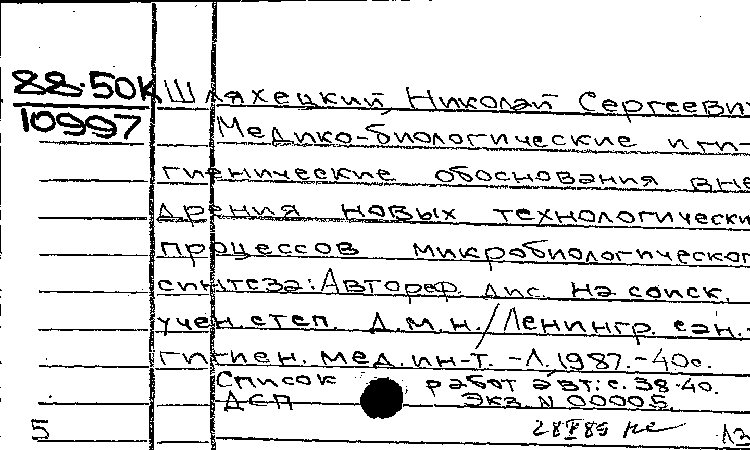 88.50к Шляхецкий, Николай Сергеевич
10997
Медико-биологические и ги-
гиенические обоснования вне
дрения новых технологически
процессов микробиологического
синтеза: Автореф. дис. на соиск.
учен. степ. д.м.н./Ленингр. сан.-
гигиен. мед. ин-т. -Л. 1987.-40с.
Список работ авт.: с. 38-40.
ДСП Экз. N 00005.
5